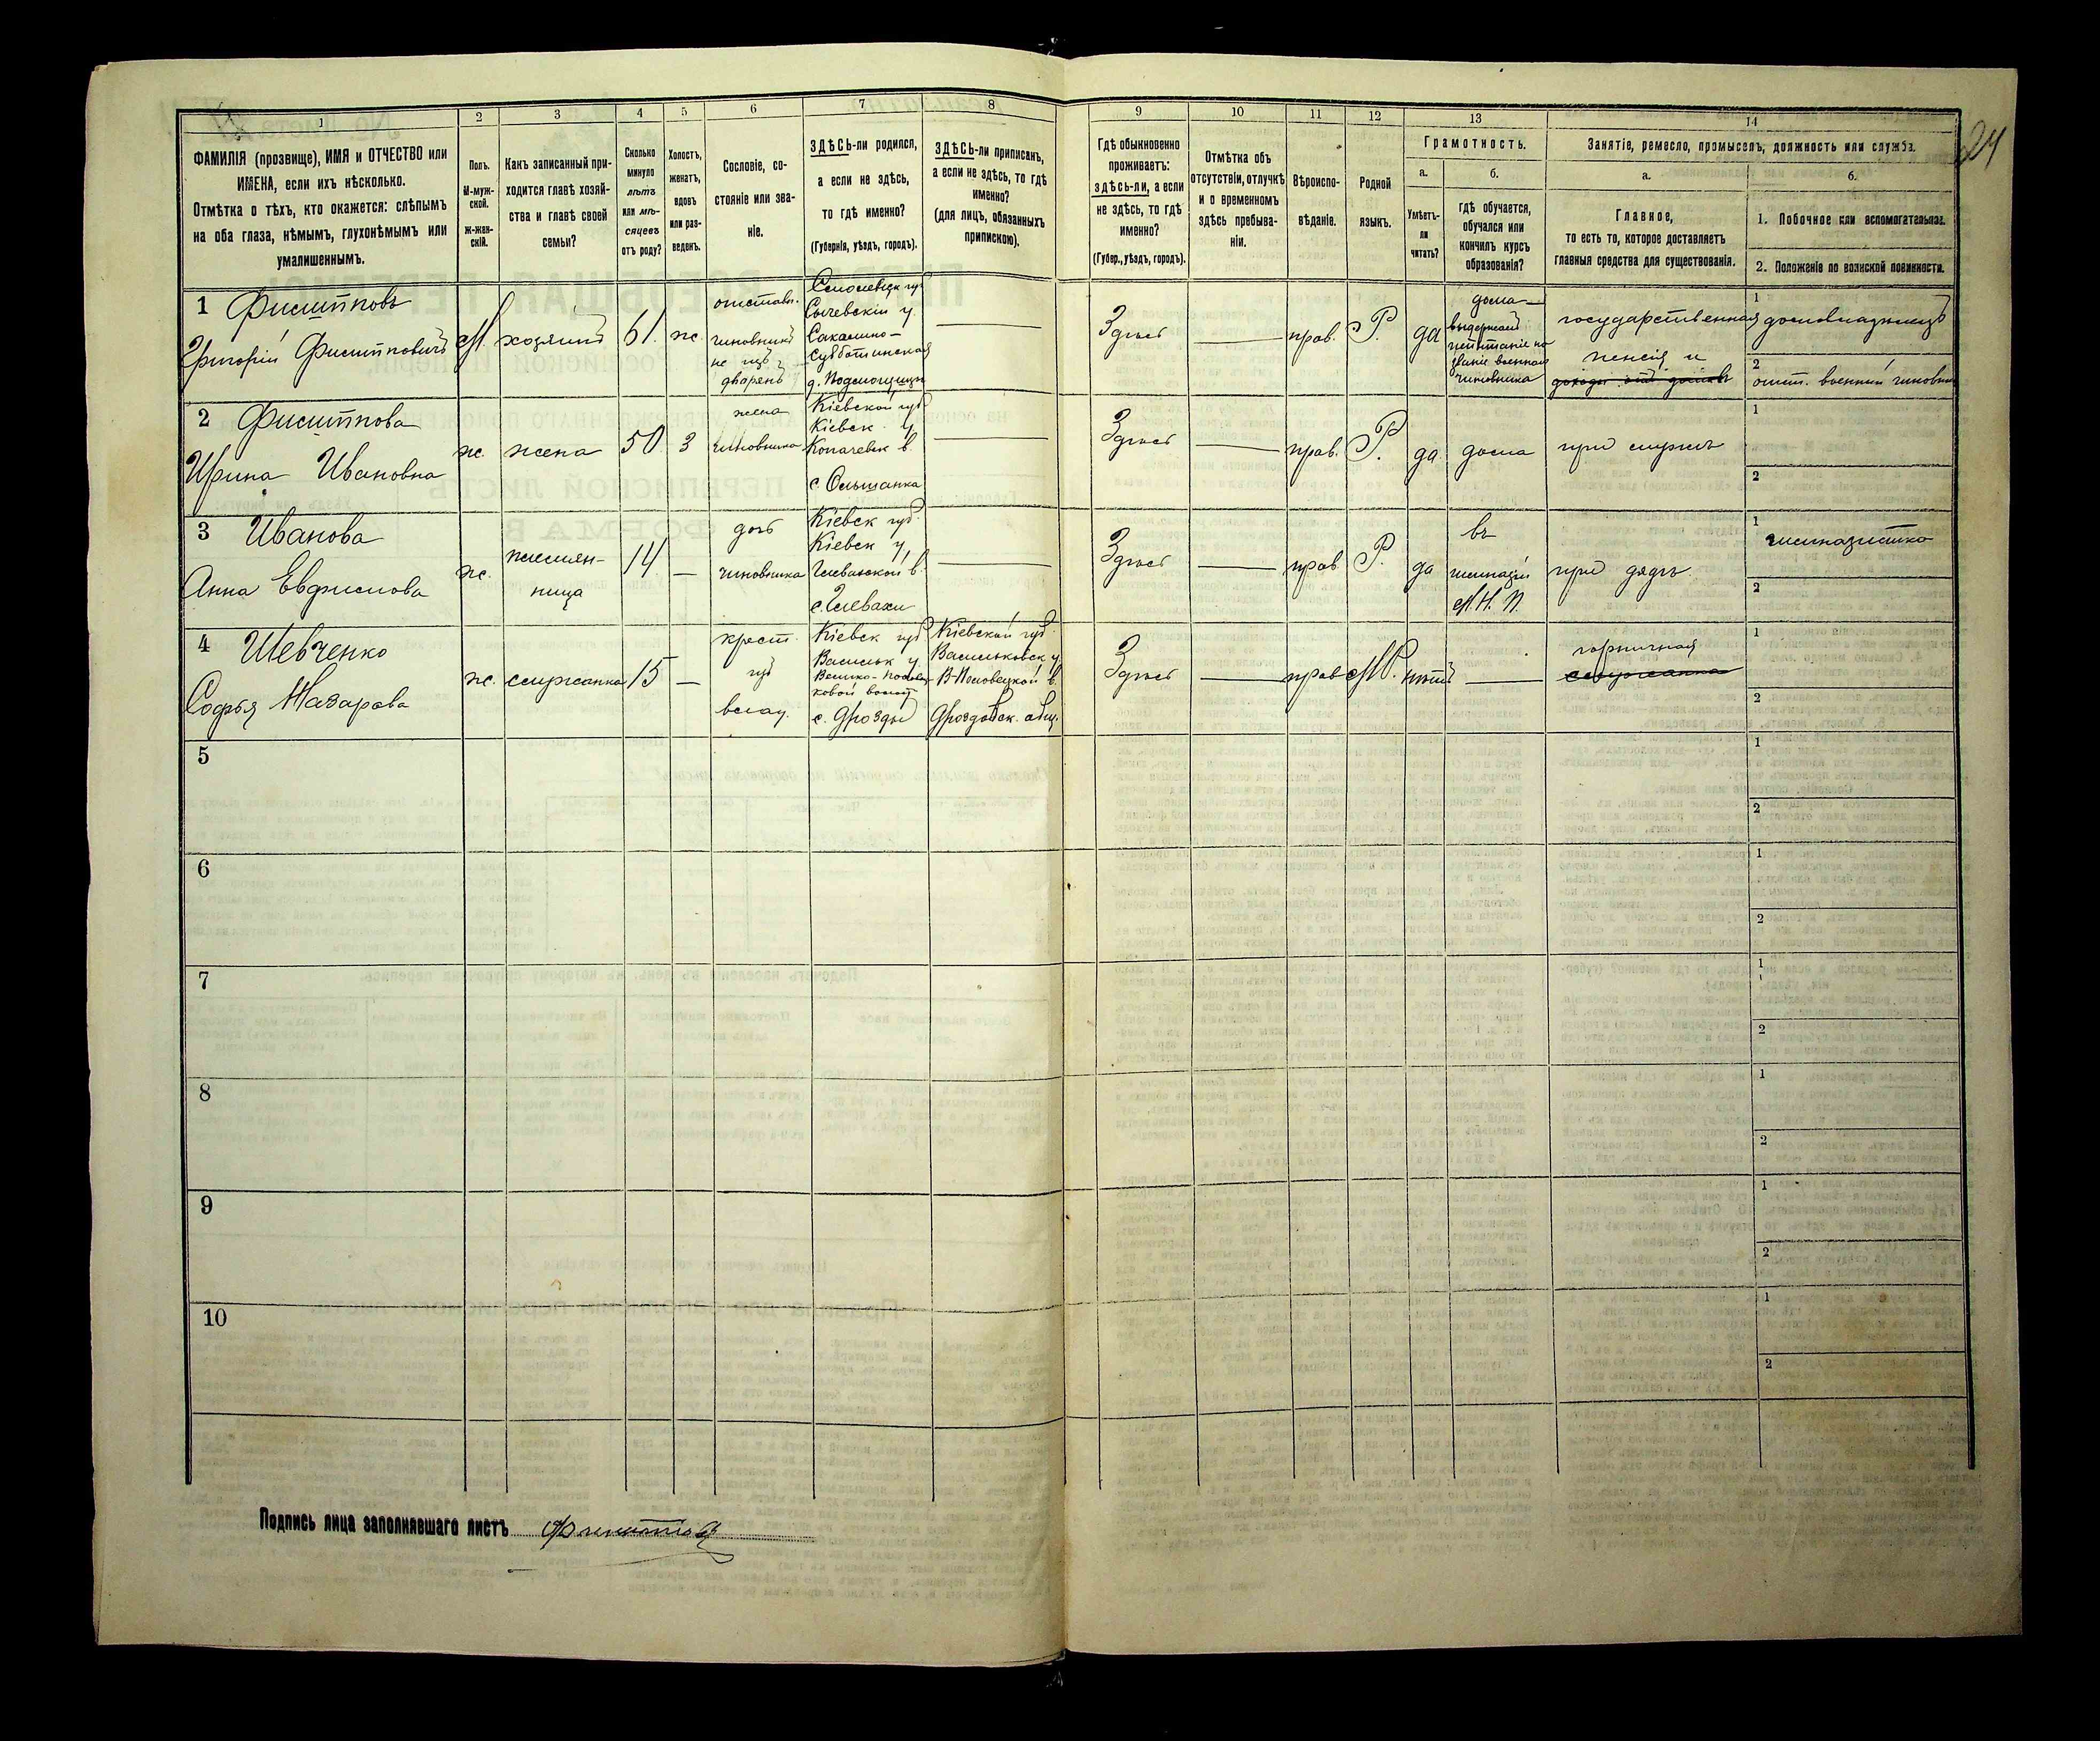 24
1
2
3
4
5
6
7
8
9
10
11
12
13
14
ФАМИЛІЯ (прозвище), ИМЯ и ОТЧЕСТВО или
ИМЕНА, если ихъ нѣсколько.
Отмѣтка о тѣхъ, кто окажется: слѣпымъ
на оба глаза, нѣмымъ, глухонѣмымъ или
умалишеннымъ.
Полъ.
М-муж-
ской.
Ж-жен-
скій.
Какъ записанный при-
ходится главѣ хозяй-
ства и главѣ своей
семьи?
Сколько
минуло
лѣтъ
или мѣ-
сяцевъ
отъ роду?
Холостъ,
женатъ,
вдовъ
или раз-
веденъ.
Сословіе, со-
стояніе или зва-
ніе.
ЗДѢСЬ-ли родился,
а если не здѣсь,
то гдѣ именно?
(Губернія, уѣздъ, городъ).
ЗДѢСЬ-ли приписанъ,
а если не здѣсь, то гдѣ
именно?
(для лицъ, обязанныхъ
припискою).
Гдѣ обыкновенно
проживаетъ:
здѣсь-ли, а если
не здѣсь, то гдѣ
именно?
(Губер., уѣздъ, городъ).
Отмѣтка объ
отсутствіи, отлучкѣ
и о временномъ
здѣсь пребыва-
ніи.
Вѣроиспо-
вѣданіе.
Родной
языкъ.
Грамотность.
а.
Умѣетъ-
ли
читать?
б.
гдѣ обучается,
обучался или
кончилъ курсъ
образованія?
Занятіе, ремесло, промыселъ, должность или служба.
а.
Главное,
то есть то, которое доставляетъ
главныя средства для существованія.
б.
1. Побочное или вспомогательное.
2. Положеніе по воинской повинности.
1 Филипповъ
Григорій Филипповичъ
М.
хозяинъ
61.
ж.
отставн.
чиновникъ
не изъ
дворянъ
Смоленск губ
Сычевскій у.
Сакалино-
Субботинская
д. Подмощицы
Здѣсь
прав.
Р.
да
дома
выдержалъ
испытаніе на
званіе военнаго
чиновника
государственная
пенсія и
доходы отъ домовъ
1
домовладѣлецъ
2
отст. военный чиновник
2 Филиппова
Ирина Ивановна
ж.
жена
50
3
жена
чиновника
Кіевской губ
Кіевск. у
Копачевск в.
с. Ольшанка
Здѣсь
прав.
Р.
да
дома
при мужѣ
1
2
3 Иванова
Анна Евфимова
ж.
племян-
ница
14
дочь
чиновника
Кіевск губ.
Кіевск у,
Глевахской в.
с. Глевахи
Здѣсь
прав
Р.
да
въ
гимназіи
М. Н. П.
при дядѣ.
1
гимназистка
2
4 Шевченко
Софья Назарова
ж.
служанка
15
крест.
губ
влад.
Кіевск губ
Васильк у.
Велико-Половец-
ковой волост
с. Дрозды
Кіевской губ.
Васильковск у
В-Половецкой в.
Дроздовск. общ.
Здѣсь
прав
М.Р.
нѣтъ
горничная
служанка
1
2
5
1
2
6
1
2
7
1
2
8
1
2
9
1
2
10
1
2
Подпись лица заполнявшаго листъ Филипповъ